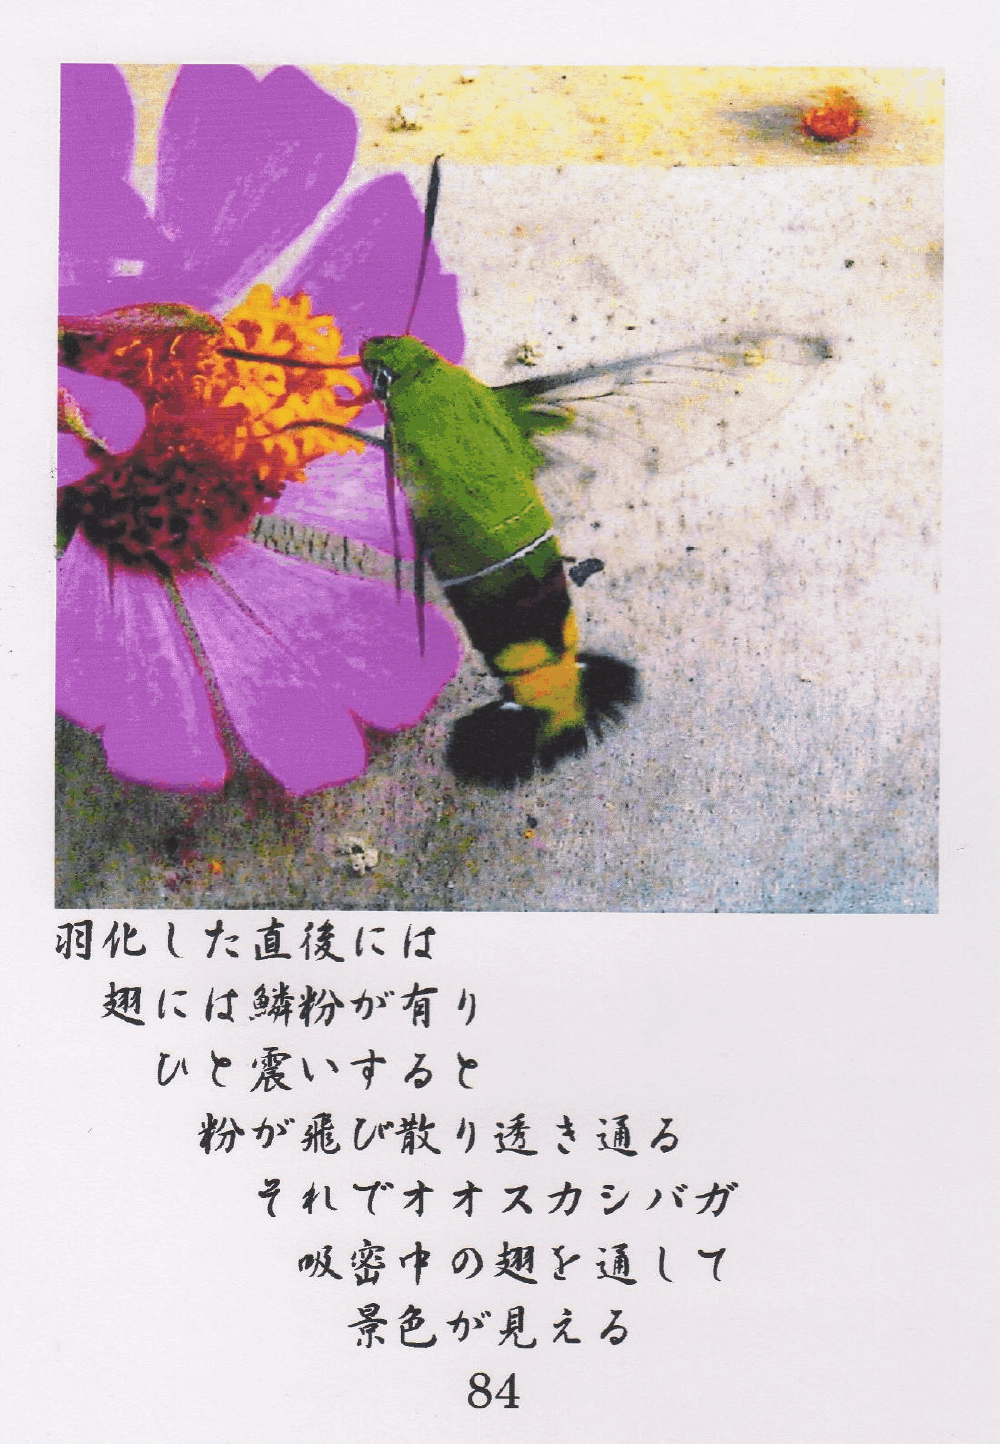 羽化した直後には
翅には鱗粉が有り
ひと震いすると
粉が飛び散り透き通る
それでオオスカシバガ
吸密中の翅を通して
景色が見える
84